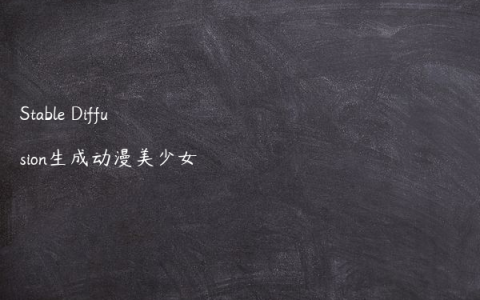 Stable Diffu
sion生成动漫美少女